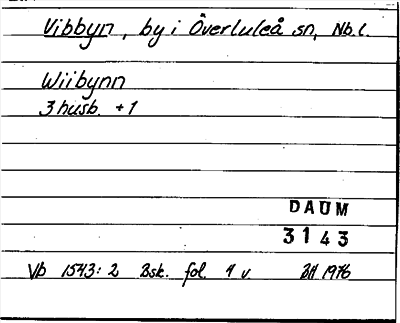 Vibbyn, by i Överluleå sn, Nb. l.
Wiibynn
3 husb. + 1
DAUM
3143
Vb 1543: 2 Bsk. fol. 4 v BH 1976